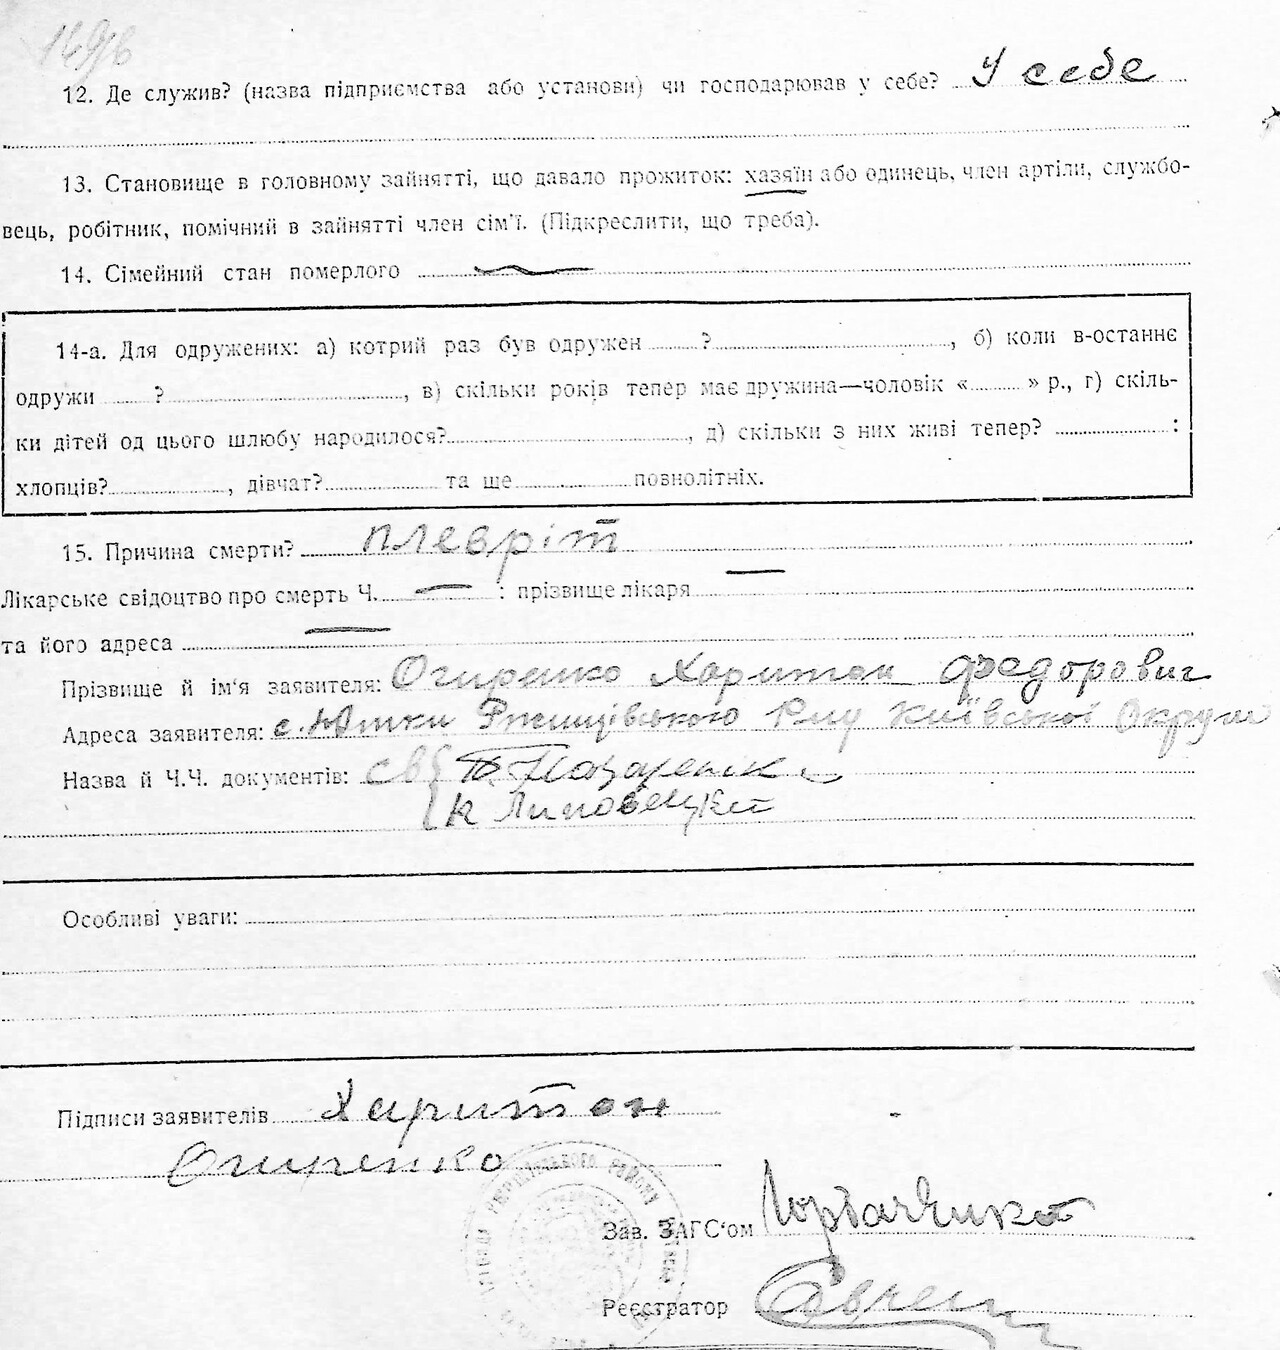 12. Де служив? (назва підприємства або установи) чи господарював у себе? У себе
13. Становище в головному зайнятті, що давало прожиток: хазяїн або одинець, член артіли, службо-
вець, робітник, помічний в зайнятті член сім'ї. (Підкреслити, що треба).
14. Сімейний стан померлого
14-а. Для одружених: а) котрий раз був одружен ? , б) коли в-останнє
одружи ? , в) скільки років тепер має дружина—чоловік « » р., г) скіль-
ки дітей од цього шлюбу народилося? , д) скільки з них живі тепер? :
хлопців? , дівчат? та ще повнолітніх.
15. Причина смерти? плевріт
Лікарське свідоцтво про смерть Ч. — : прізвище лікаря —
та його адреса —
Прізвище й ім'я заявителя: Огиренко Харитон Федорович
Адреса заявителя: с. Юшки Ржищівського Р-ну Київської Округи
Назва й Ч.Ч. документів: свід
Особливі уваги:
Підписи заявителів Харитон
Огиренко
Зав. ЗАГС'ом
Реєстратор